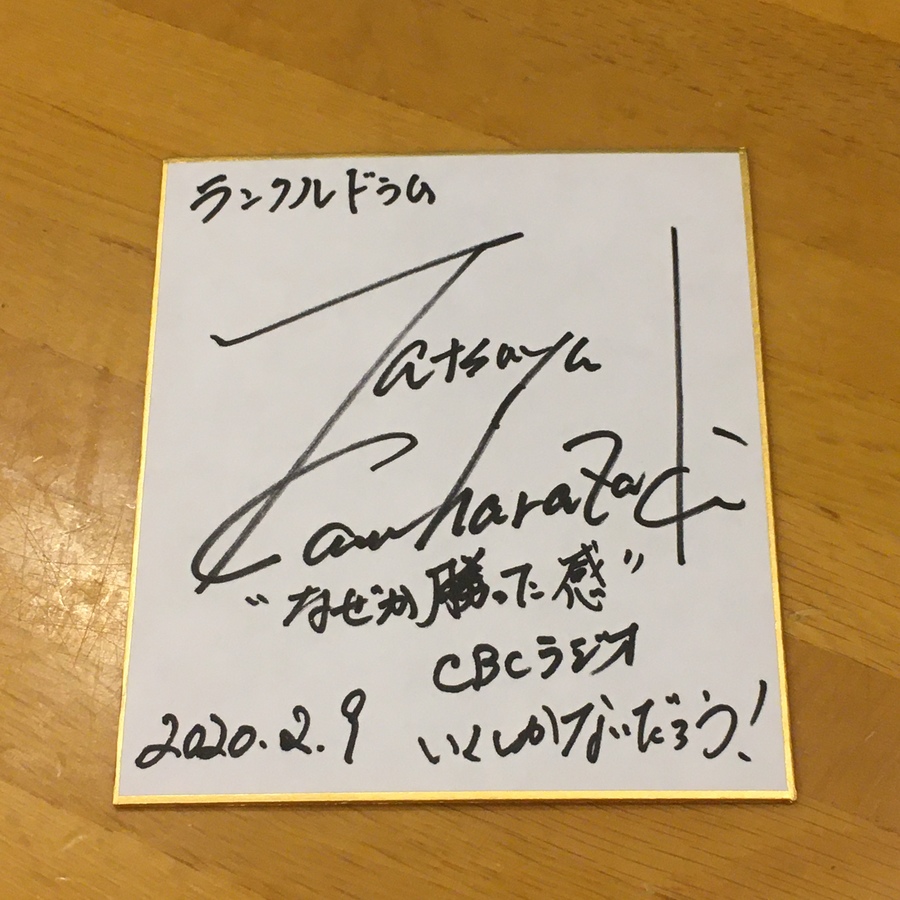 ランクルドラム
Tatsuya
Kawharazaki
"なぜか勝った感"
CBCラジオ
2020.2.9 いくしかないだろう！